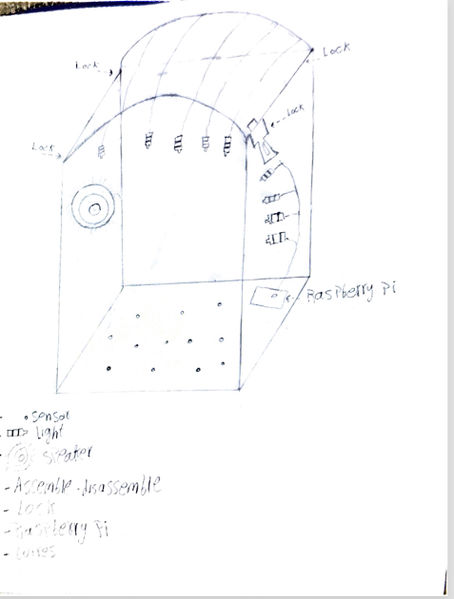 Lock
Lock
Lock
Lock
Raspberry Pi
sensor
light
speaker
- Assemble - disassemble
- Lock
- Raspberry Pi
- wires